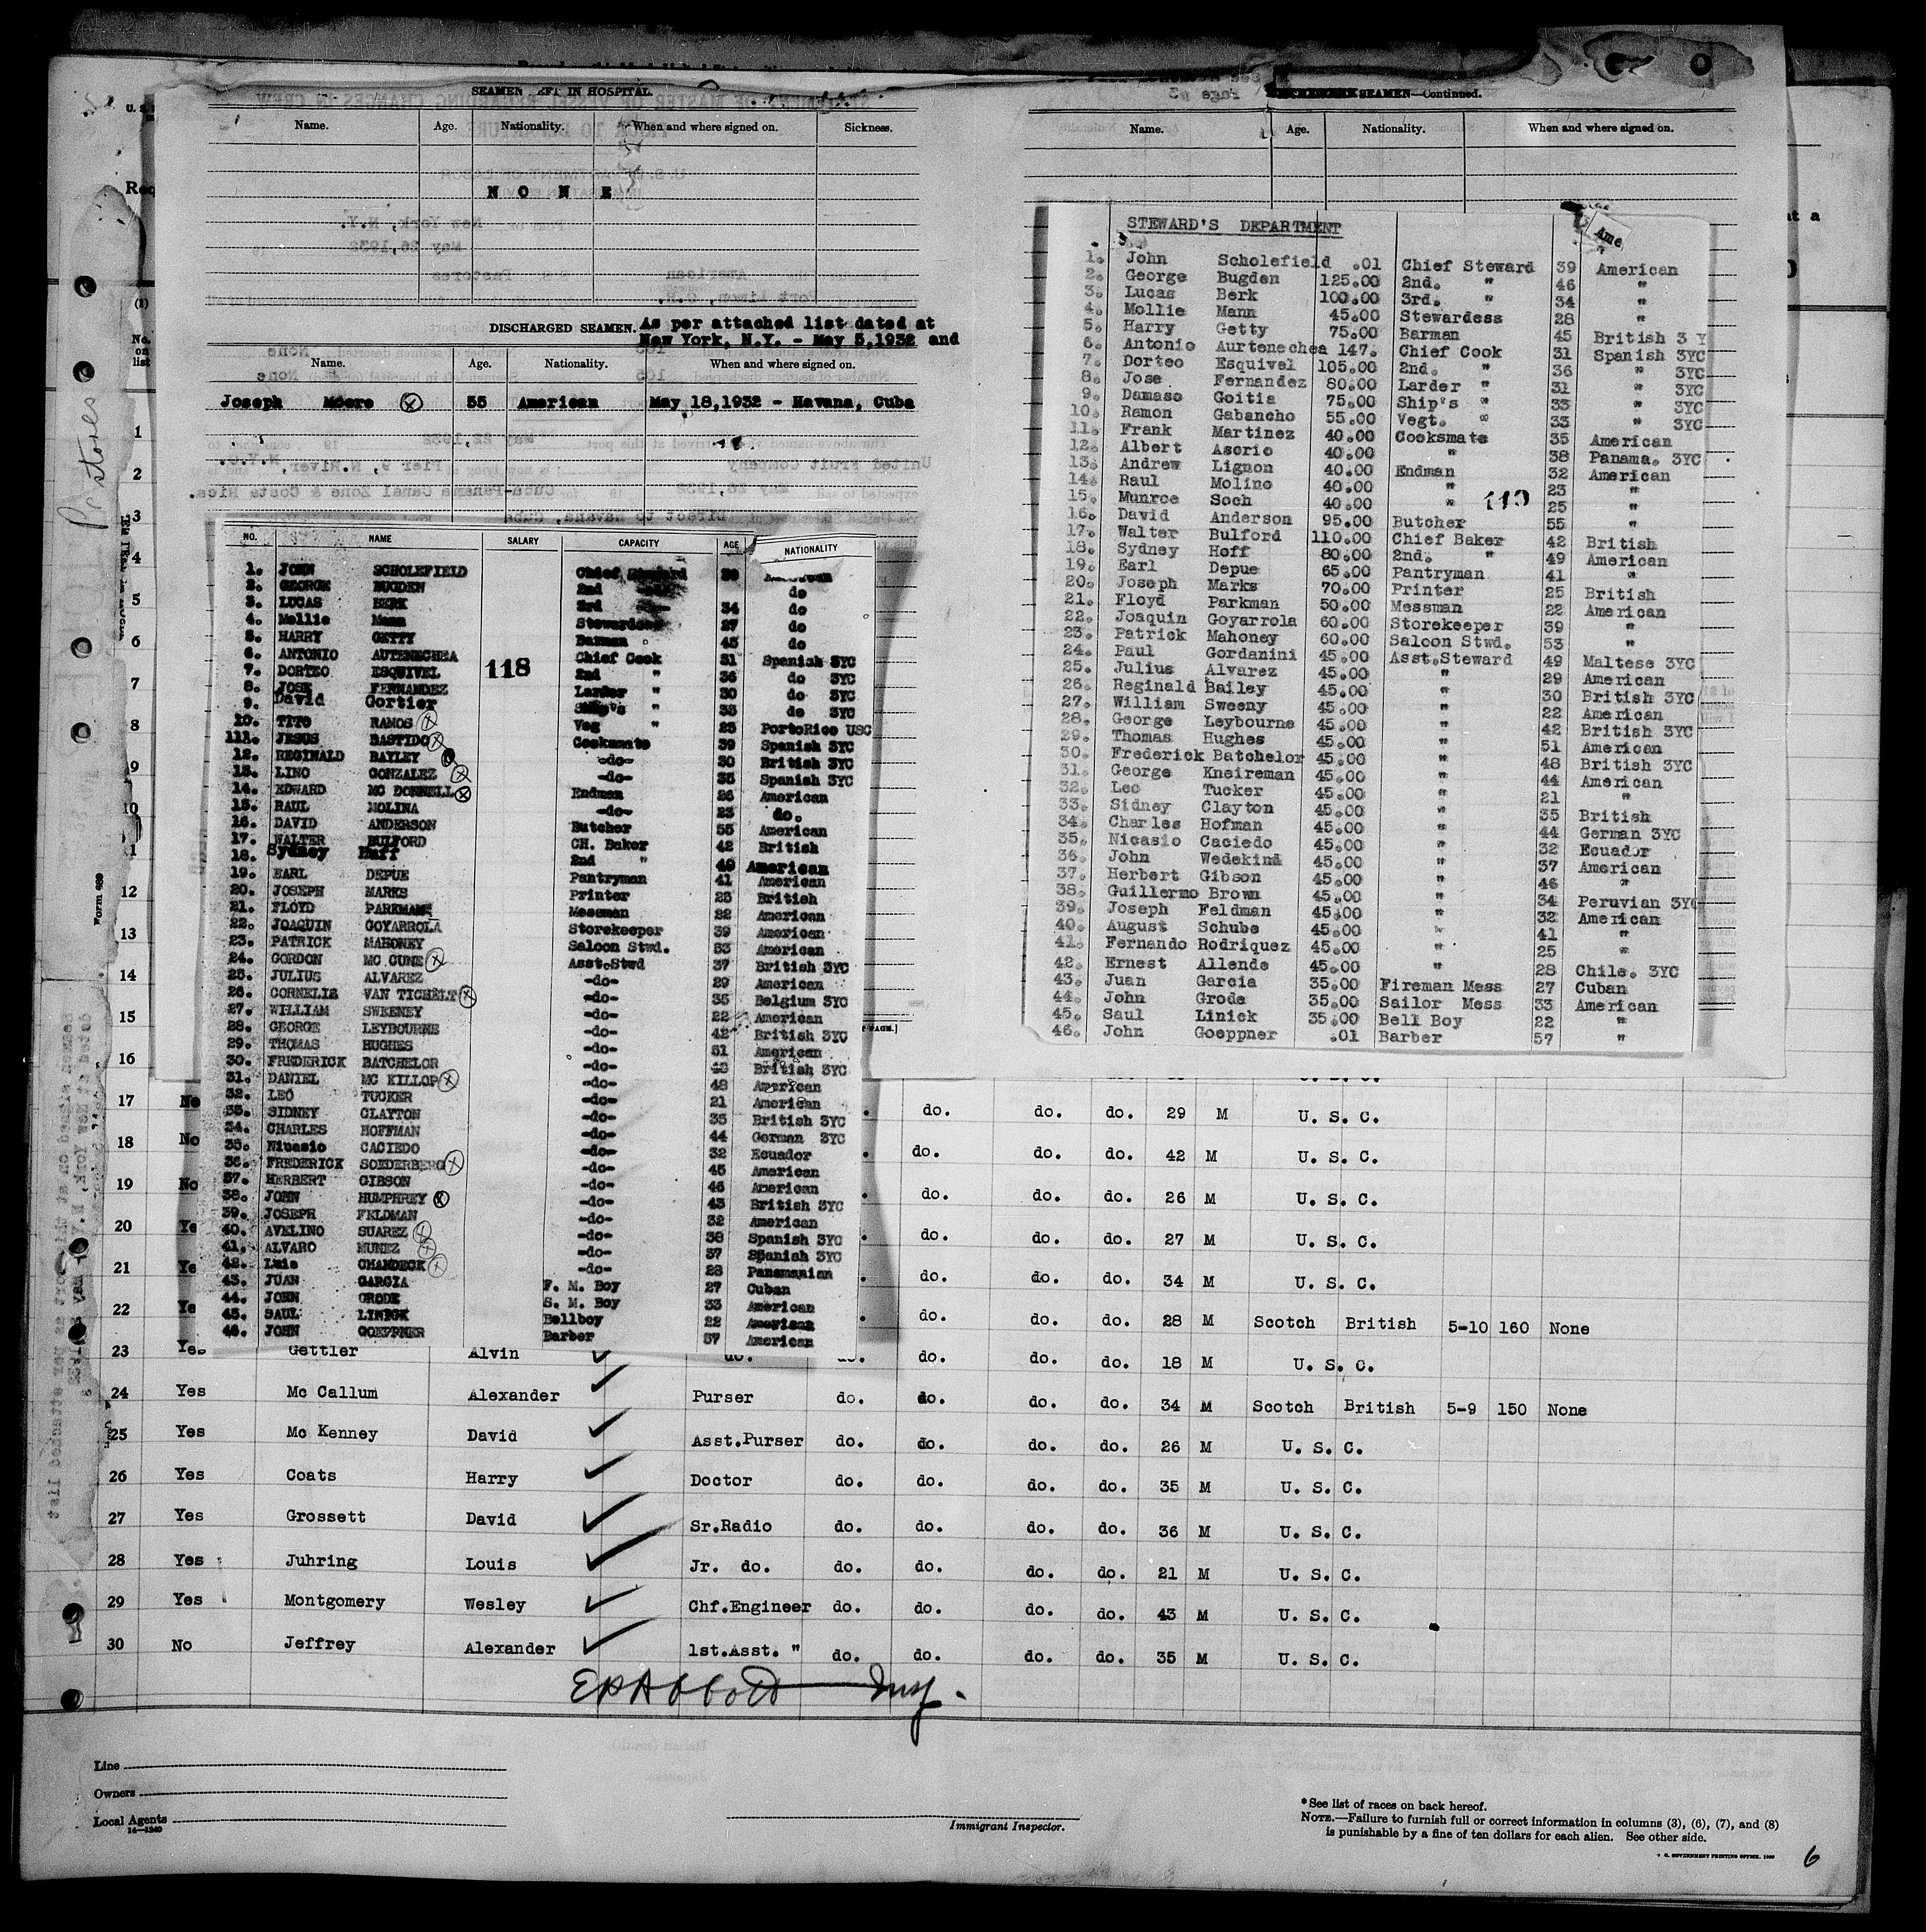 SEAMEN LEFT IN HOSPITAL.
Name. Age. Nationality. When and where signed on. Sickness.
N O N E
DISCHARGED SEAMEN. As per attached list dated at
New York, N.Y. - May 5,1932 and
Name. Age. Nationality. When and where signed on.
Joseph Moore 55 American May 18,1932 - Havana, Cuba
NO. NAME SALARY CAPACITY AGE NATIONALITY
118
1. JOHN SCHOLEFIELD Chief
2. GEORGE BUGDEN 2nd do
3. LUCAS BERK 3rd 34 do
4. Mollie Mann Stewardess 27 do
5. HARRY GETTY Barman 45 do
6. ANTONIO AUTENECHEA Chief Cook 31 Spanish 3YC
7. DORTEO ESQUIVEL 2nd " 36 do 3YC
8. JOSE FERNANDEZ Larder " 30 do 3YC
9. David Gortier Ship's " 33 do 3YC
10. TITO RAMOS Veg " 23 PortoRico USC
111. JESUS BASTIDO Cooksmate 39 Spanish 3YC
12. REGINALD BAYLEY -do- 30 British 3YC
13. LINO GONZALEZ -do- 35 Spanish 3YC
14. EDWARD MC DONNELL Endman 26 American
15. RAUL MOLINA -do- 23 do.
16. DAVID ANDERSON Butcher 55 American
17. WALTER BULFORD CH. Baker 42 British
18. Sydney Huff 2nd " 49 American
19. EARL DEPUE Pantryman 41 American
20. JOSEPH MARKS Printer 25 British
21. FLOYD PARKMAN Messman 22 American
22. JOAQUIN GOYARROLA Storekeeper 39 American
23. PATRICK MAHONEY Saloon Stwd. 53 American
24. GORDON MC CUNE Asst.Stwd 37 British 3YC
25. JULIUS ALVAREZ -do- 29 American
26. CORNELIS VAN TICHELT -do- 35 Belgium 3YC
27. WILLIAM SWEENEY -do- 22 American
28. GEORGE LEYBOURNE -do- 42 British 3YC
29. THOMAS HUGHES -do- 51 American
30. FREDERICK BATCHELOR -do- 48 British 3YC
31. DANIEL MC KILLOP -do- 48 American
32. LEO TUCKER -do- 21 American
33. SIDNEY CLAYTON -do- 35 British 3YC
34. CHARLES HOFFMAN -do- 44 German 3YC
35. Nicasio CACIEDO -do- 32 Ecuador
36. FREDERICK SOEDERBERG -do- 45 American
37. HERBERT GIBSON -do- 46 American
38. JOHN HUMPHREY -do- 43 British 3YC
39. JOSEPH FELDMAN -do- 32 American
40. AVELINO SUAREZ -do- 38 Spanish 3YC
41. ALVARO MUNEZ -do- 37 Spanish 3YC
42. Luis CHANDECK -do- 28 Panamanian
43. JUAN GARCIA F. M. Boy 27 Cuban
44. JOHN GRODE S. M. Boy 33 American
45. SAUL LINICK Bellboy 22 American
46. JOHN GOEPPNER Barber 57 American
SEAMEN—Continued.
Name. Age. Nationality. When and where signed on.
STEWARD'S DEPARTMENT
Ame
1. John Scholefield .01 Chief Steward 39 American
2. George Bugden 125.00 2nd. " 46 "
3. Lucas Berk 100.00 3rd. " 34 "
4. Mollie Mann 45.00 Stewardess 28 "
5. Harry Getty 75.00 Barman 45 British 3 Y
6. Antonio Aurtenechea 147. Chief Cook 31 Spanish 3YC
7. Dorteo Esquivel 105.00 2nd. " 36 " 3YC
8. Jose Fernandez 80.00 Larder " 31 " 3YC
9. Damaso Goitia 75.00 Ship's " 33 " 3YC
10. Ramon Gabancho 55.00 Vegt. " 33 " 3YC
11. Frank Martinez 40.00 Cooksmate 35 American
12. Albert Asorio 40.00 " 38 Panama. 3YC
13. Andrew Lignon 40.00 Endman 32 American
14. Raul Molino 40.00 " 23 "
15. Munroe Soch 40.00 " 25 "
119
16. David Anderson 95.00 Butcher 55 "
17. Walter Bulford 110.00 Chief Baker 42 British
18. Sydney Hoff 80.00 2nd. " 49 American
19. Earl Depue 65.00 Pantryman 41 "
20. Joseph Marks 70.00 Printer 25 British
21. Floyd Parkman 50.00 Messman 22 American
22. Joaquin Goyarrola 60.00 Storekeeper 39 "
23. Patrick Mahoney 60.00 Saloon Stwd. 53 "
24. Paul Gordanini 45.00 Asst.Steward 49 Maltese 3YC
25. Julius Alvarez 45.00 " 29 American
26. Reginald Bailey 45.00 " 30 British 3YC
27. William Sweeny 45.00 " 22 American
28. George Leybourne 45.00 " 42 British 3YC
29. Thomas Hughes 45.00 " 51 American
30. Frederick Batchelor 45.00 " 48 British 3YC
31. George Kneireman 45.00 " 44 American
32. Leo Tucker 45.00 " 21 "
33. Sidney Clayton 45.00 " 35 British
34. Charles Hofman 45.00 " 44 German 3YC
35. Nicasio Caciedo 45.00 " 32 Ecuador
36. John Wedekind 45.00 " 37 American
37. Herbert Gibson 45.00 " 46 "
38. Guillermo Brown 45.00 " 34 Peruvian 3YC
39. Joseph Feldman 45.00 " 32 American
40. August Schube 45.00 " 41 "
41. Fernando Rodriquez 45.00 " 25 "
42. Ernest Allende 45.00 " 28 Chile. 3YC
43. Juan Garcia 35.00 Fireman Mess 27 Cuban
44. John Grode 35.00 Sailor Mess 33 American
45. Saul Linick 35.00 Bell Boy 22 "
46. John Goeppner .01 Barber 57 "
No.
on
list
1
2
3
4
5
6
7
8
9
10
12
13
14
15
16
17 No do. do. do. 29 M U. S. C.
18 No do. do. do. 42 M U. S. C.
19 No do. do. do. 26 M U. S. C.
20 Ye do. do. do. 27 M U. S. C.
21 Ye do. do. do. 34 M U. S. C.
22 Ye do. do. do. 28 M Scotch British 5-10 160 None
23 Yes Gettler Alvin do. do. do. do. do. 18 M U. S. C.
24 Yes Mc Callum Alexander Purser do. do. do. do. 34 M Scotch British 5-9 150 None
25 Yes Mc Kenney David Asst.Purser do. do. do. do. 26 M U. S. C.
26 Yes Coats Harry Doctor do. do. do. do. 35 M U. S. C.
27 Yes Grossett David Sr.Radio do. do. do. do. 36 M U. S. C.
28 Yes Juhring Louis Jr. do. do. do. do. do. 21 M U. S. C.
29 Yes Montgomery Wesley Chf.Engineer do. do. do. do. 43 M U. S. C.
30 No Jeffrey Alexander 1st.Asst. " do. do. do. do. 35 M U. S. C.
EPAbbott Insp.
Line
Owners
Local Agents
14—1240
Immigrant Inspector.
*See list of races on back hereof.
NOTE.—Failure to furnish full or correct information in columns (3), (6), (7), and (8)
is punishable by a fine of ten dollars for each alien. See other side.
U. S. GOVERNMENT PRINTING OFFICE. 1930
6
Form 689